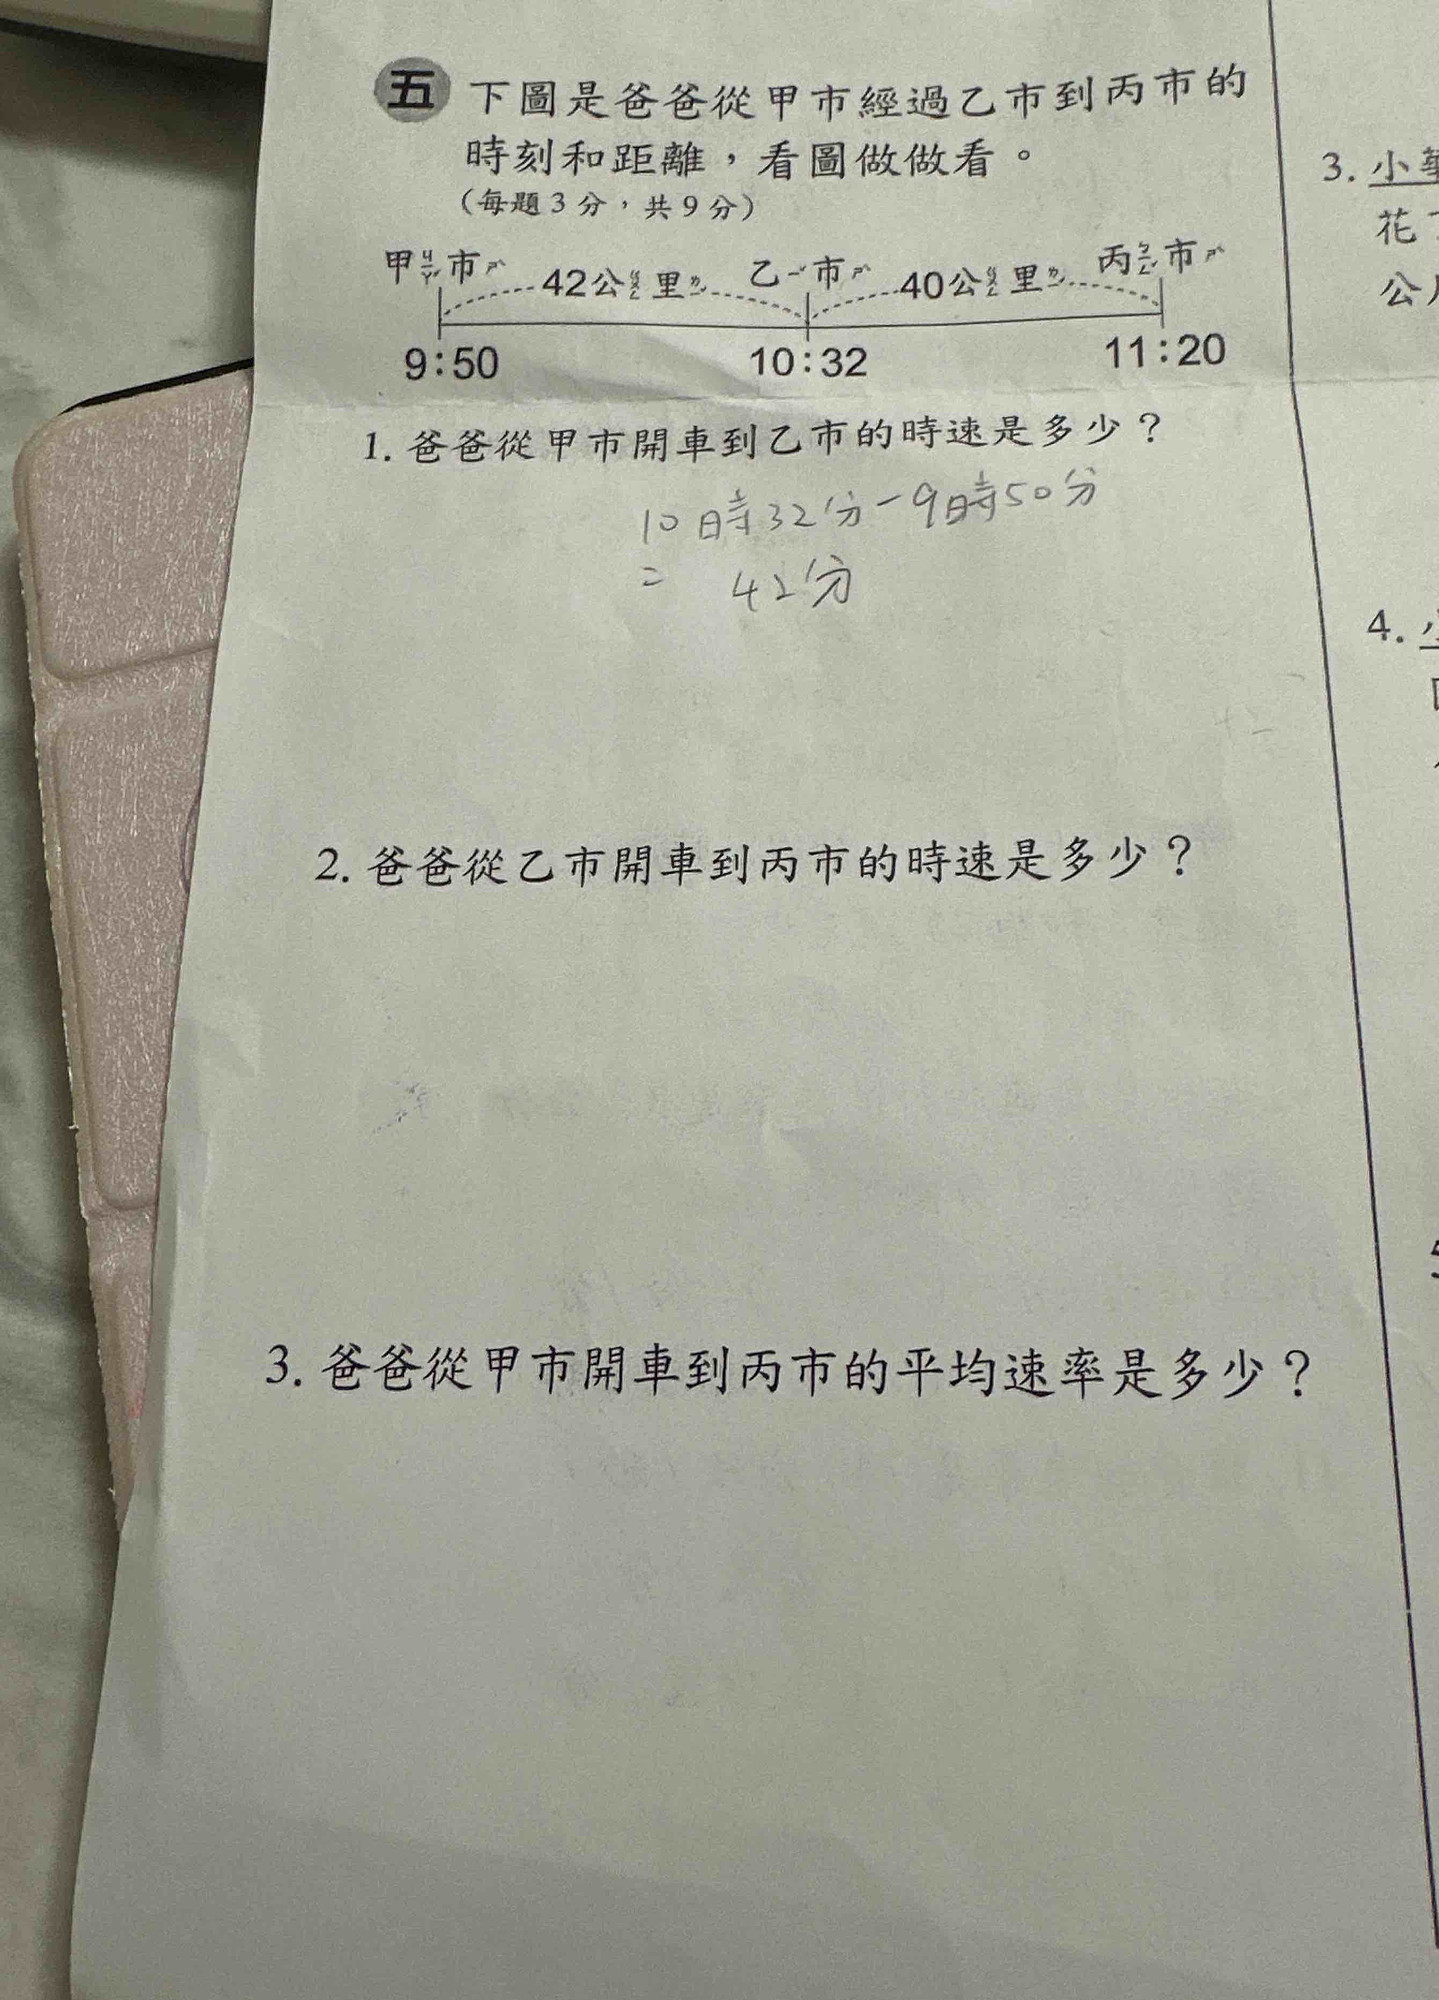 五 下圖是爸爸從甲市經過乙市到丙市的
時刻和距離，看圖做做看。
（每題3分，共9分）
甲ㄐㄧㄚˇ市ㄕˋ 42公ㄍㄨㄥ里ㄌㄧˇ 乙ㄧˇ市ㄕˋ 40公ㄍㄨㄥ里ㄌㄧˇ 丙ㄅㄧㄥˇ市ㄕˋ
9:50 10:32 11:20
1. 爸爸從甲市開車到乙市的時速是多少？
10時32分-9時50分
= 42分
2. 爸爸從乙市開車到丙市的時速是多少？
3. 爸爸從甲市開車到丙市的平均速率是多少？
3. 小華
花
公
4.